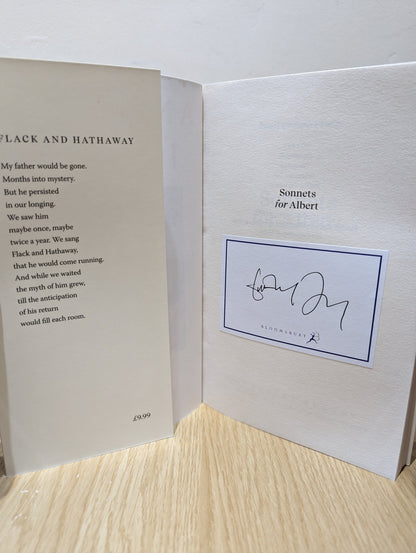 FLACK AND HATHAWAY
My father would be gone.
Months into mystery.
But he persisted
in our longing.
We saw him
maybe once, maybe
twice a year. We sang
Flack and Hathaway,
that he would come running.
And while we waited
the myth of him grew,
till the anticipation
of his return
would fill each room.
£9.99
Sonnets
for Albert
BLOOMSBURY